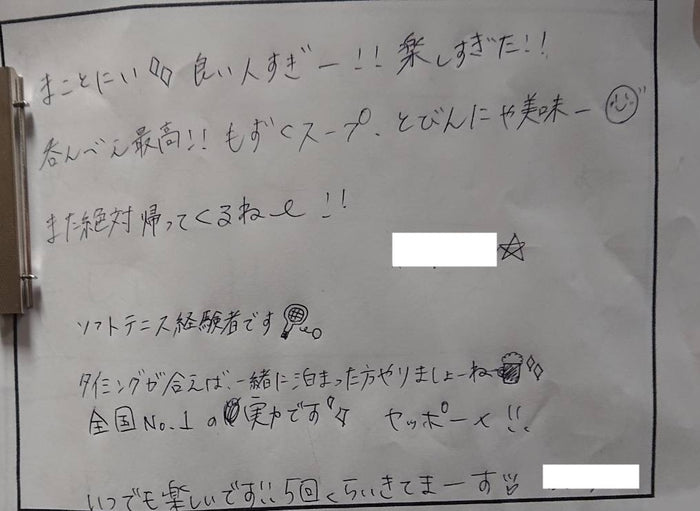 まことにい 良い人すぎー!! 楽しすぎた!!
呑んべえ最高!! もずくスープ、とびんにゃ美味ー
また絶対帰ってくるねー!!
ソフトテニス経験者です
タイミングが合えば、一緒に泊まった方やりましょーね
全国No.1の実力です ヤッポー!!
いつでも楽しいです!! 5回くらいきてまーす